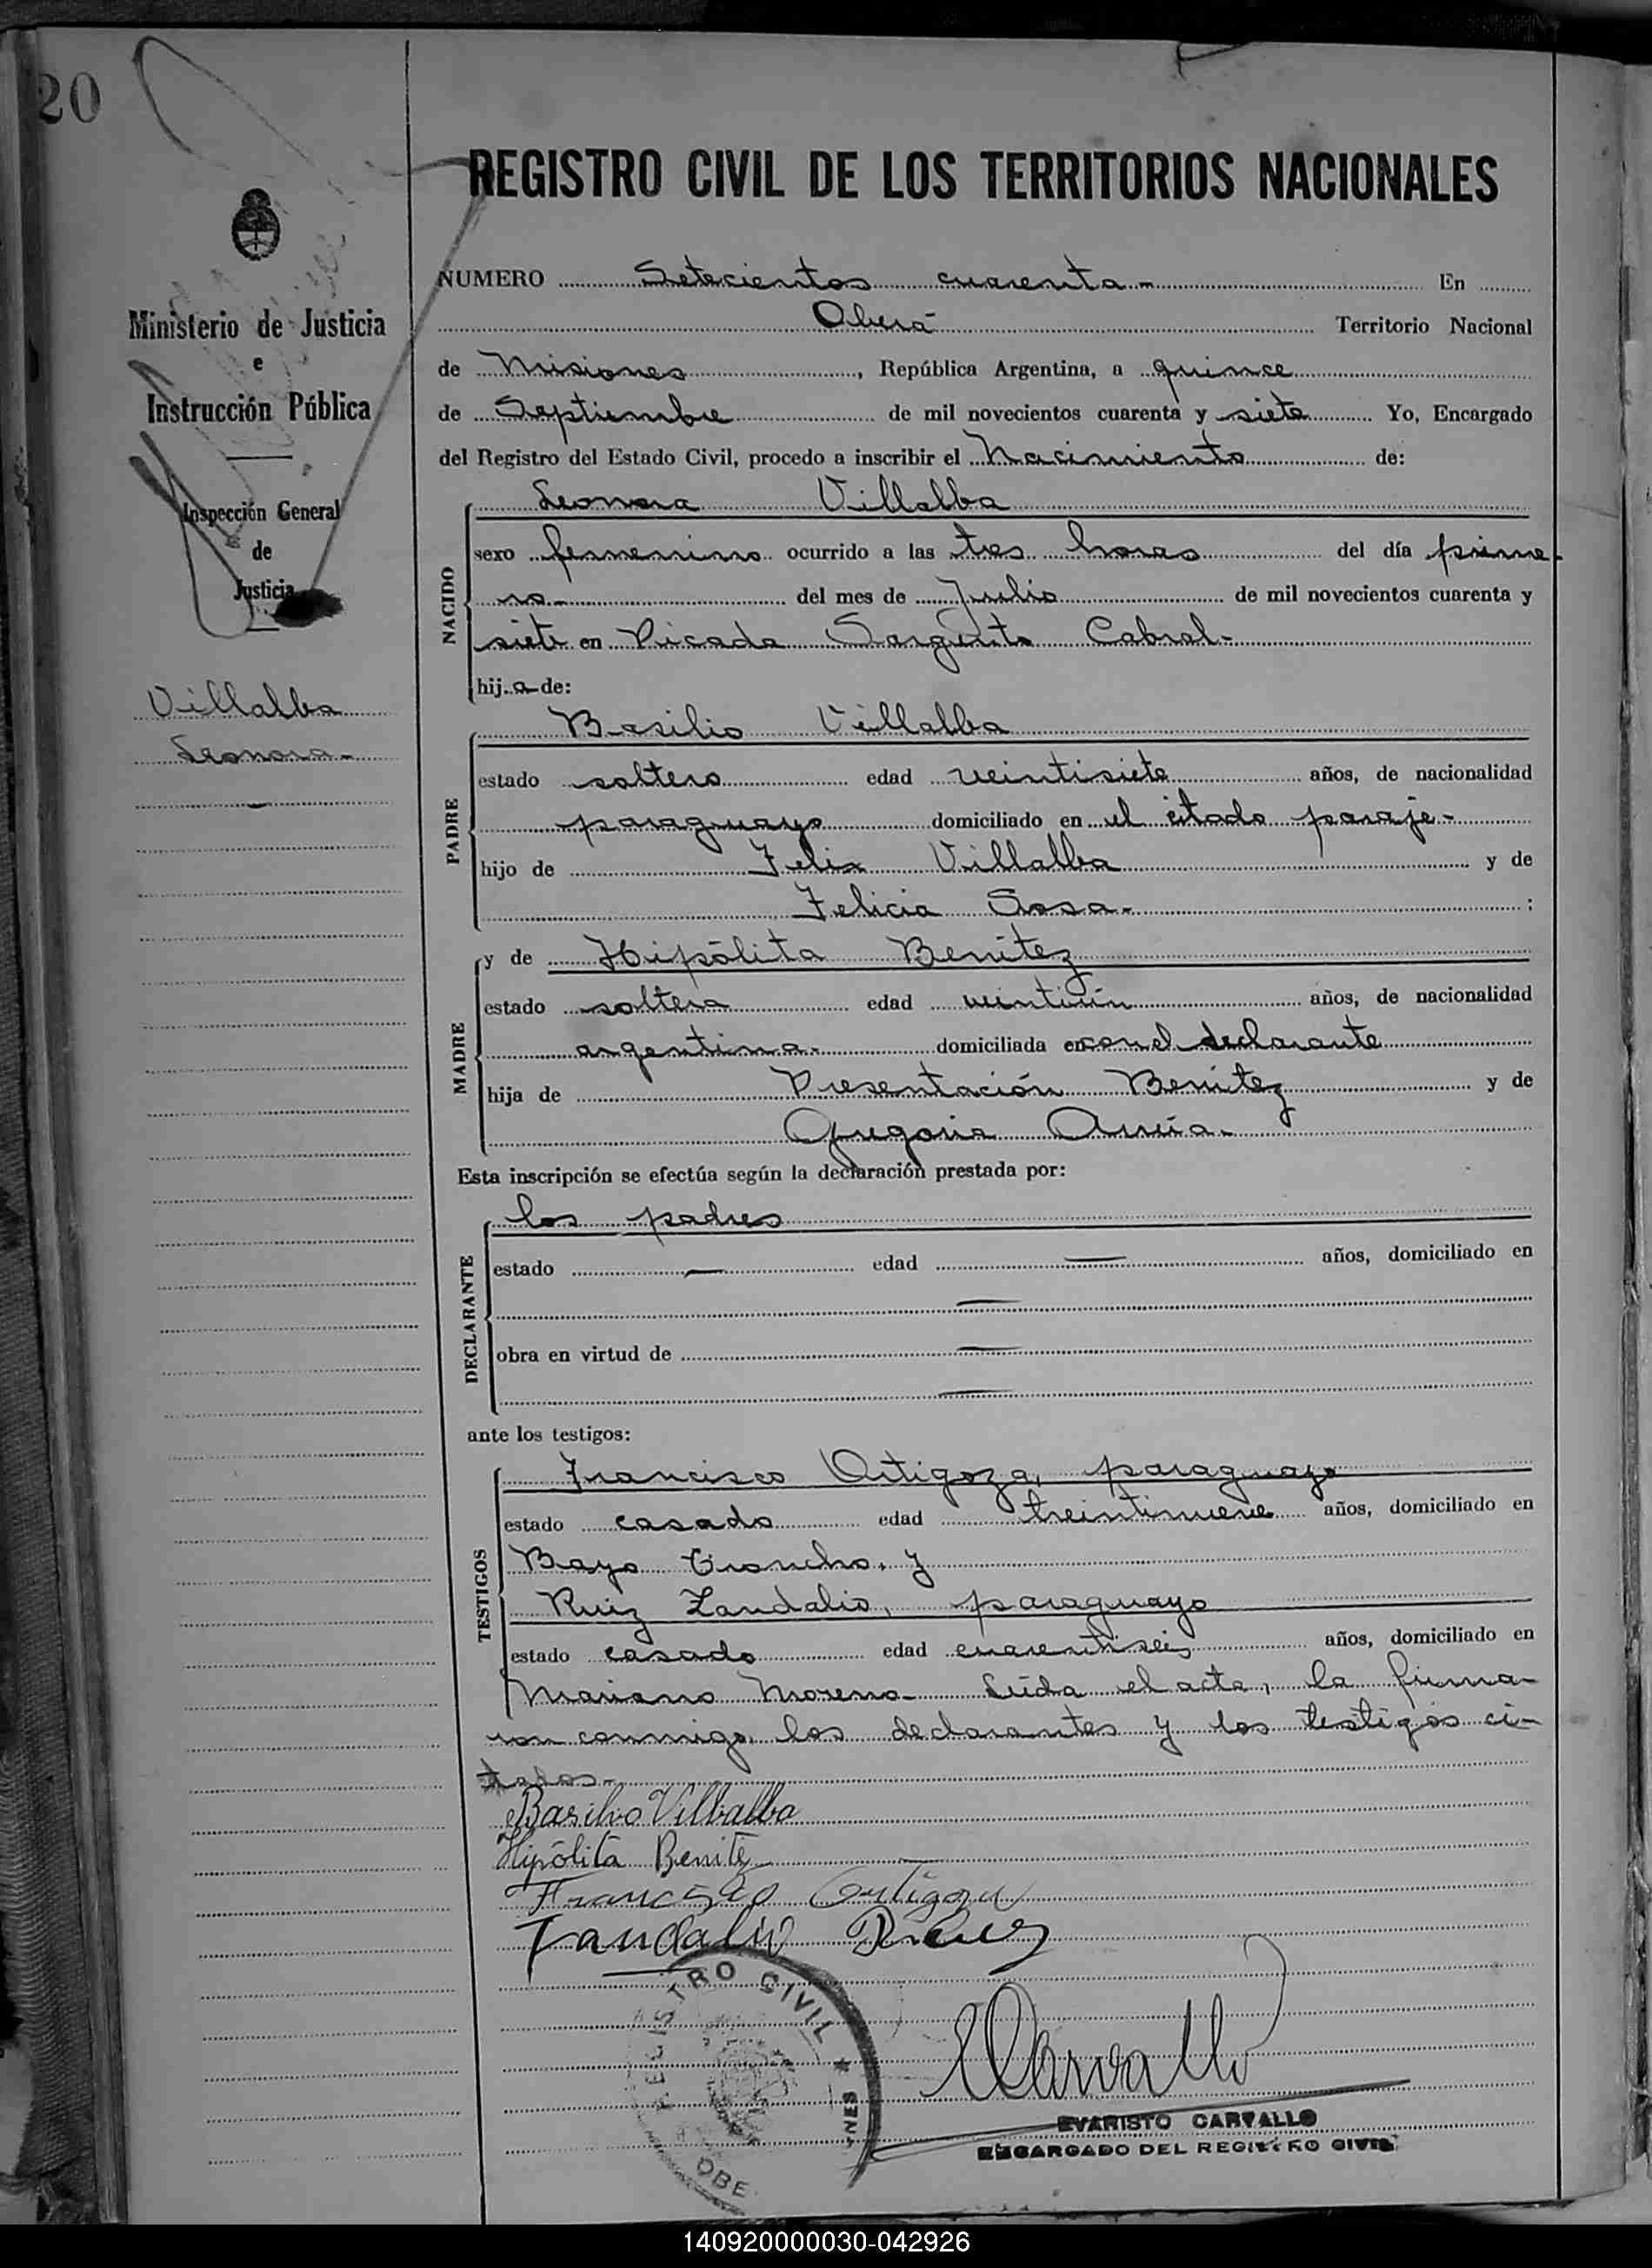 20
REGISTRO CIVIL DE LOS TERRITORIOS NACIONALES
Ministerio de Justicia
e
Instrucción Pública
Inspección General
de
Justicia
Villalba
Leonora-
NUMERO Setecientos cuarenta - En
Oberá Territorio Nacional
de Misiones, República Argentina, a quince
de Septiembre de mil novecientos cuarenta y siete Yo, Encargado
del Registro del Estado Civil, procedo a inscribir el Nacimiento de:
NACIDO
Leonora Villalba
sexo femenino ocurrido a las tres horas del día prime-
ro- del mes de Julio de mil novecientos cuarenta y
siete en Picada Sargento Cabral-
hij a de:
PADRE
Basilio Villalba
estado soltero edad veintisiete años, de nacionalidad
paraguayo domiciliado en el citado paraje-
hijo de Felix Villalba y de
Felicia Sosa- :
MADRE
y de Hipólita Benítez
estado soltera edad veintiún años, de nacionalidad
argentina- domiciliada en con el declarante
hija de Presentación Benítez y de
Gregoria
Esta inscripción se efectúa según la declaración prestada por:
DECLARANTE
los padres
estado — edad — años, domiciliado en
—
obra en virtud de —
—
ante los testigos:
TESTIGOS
Francisco Ortigoza, paraguayo
estado casado edad treintinueve años, domiciliado en
Bayo Troncho, y
Ruiz Zandalio, paraguayo
estado casado edad cuarentiseis años, domiciliado en
Mariano Moreno- Leída el acta, la firma-
ron conmigo, los declarantes y los testigos ci-
tados-
Basilio Villalba
Hipólita Benitez
Francisco Ortigoza
Tandalio Ruiz
REGISTRO CIVIL
OBE
NES
ECarvallo
EVARISTO CARVALLO
ENCARGADO DEL REGISTRO CIVIL
140920000030-042926